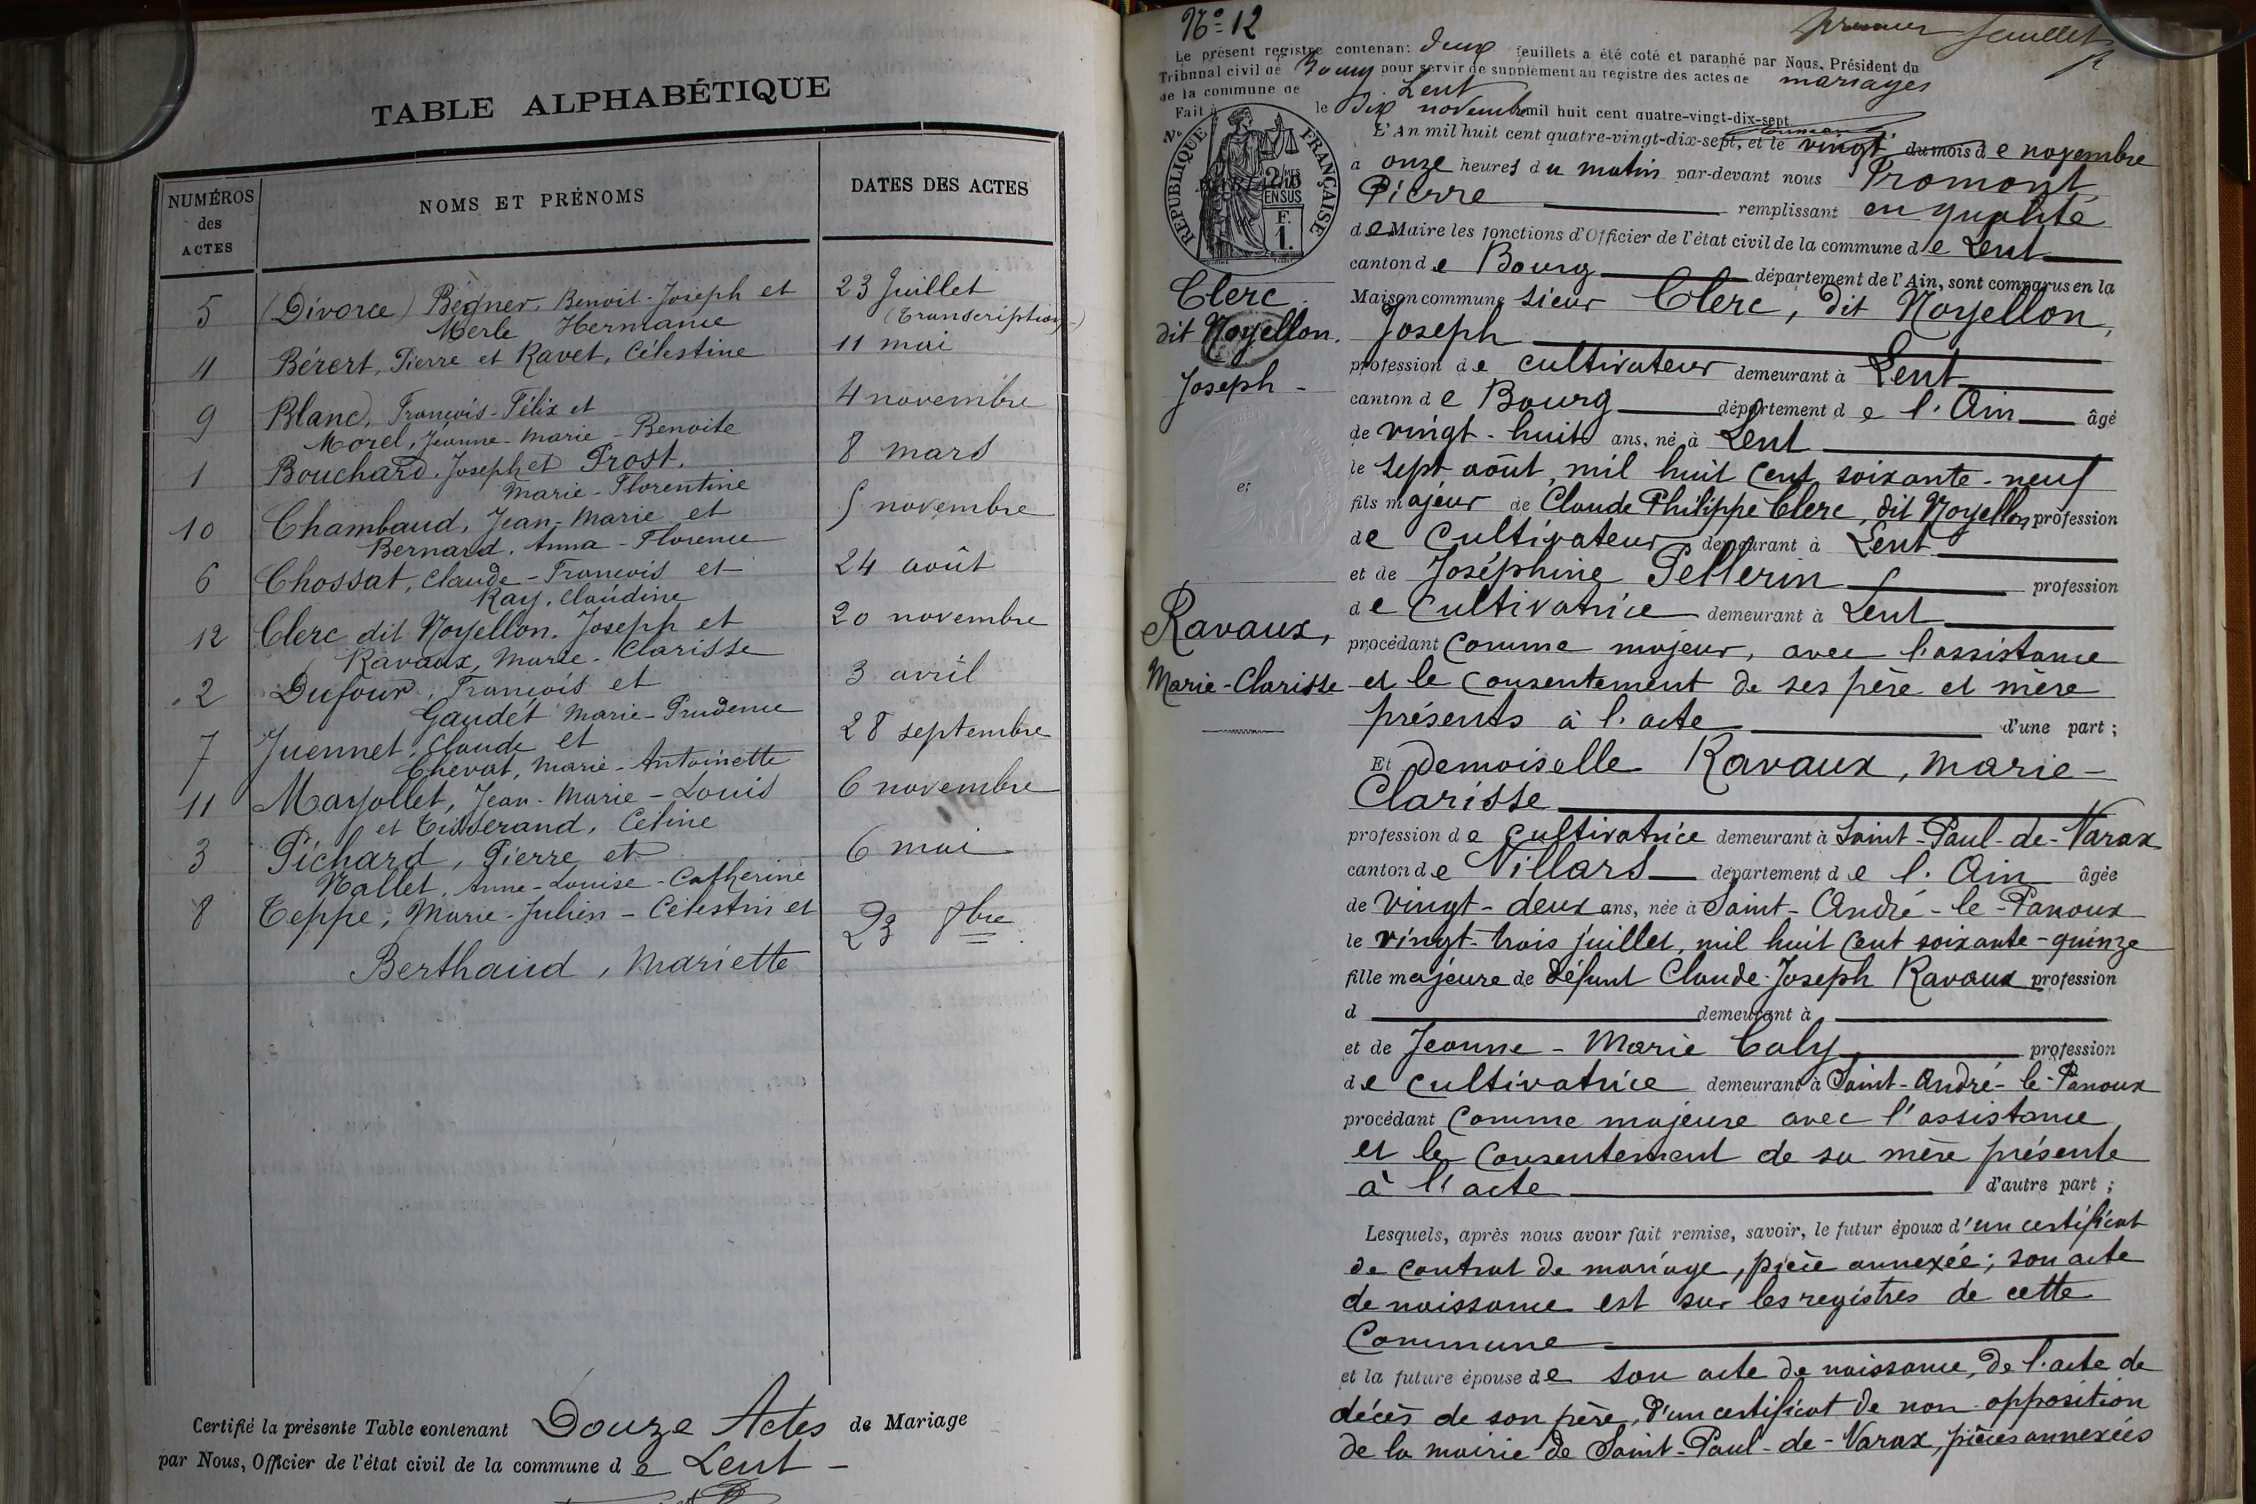 TABLE ALPHABÉTIQUE
NUMÉROS des ACTES
NOMS ET PRÉNOMS
DATES DES ACTES
5 (Divorce) Bégner, Benoit-Joseph et 23 Juillet
Merle Hermanie (transcription)
4 Bérert, Pierre et Ravet, Célestine 11 mai
9 Blanc, François-Félix et 4 novembre
Morel, Jeanne-Marie-Benoite
1 Bouchard, Joseph et Prost, 8 mars
Marie-Florentine
10 Chambaud, Jean-Marie et 5 novembre
Bernard, Anna-Florence
6 Chossat, Claude-François et 24 août
Ray, Claudine
12 Clerc dit Noyellon, Joseph et 20 novembre
Ravaux, Marie-Clarisse
2 Dufour, François et 3 avril
Gaudet Marie-Prudence
7 Juennet, Claude et 28 septembre
Chevat, Marie-Antoinette
11 Mayollet, Jean-Marie-Louis 6 novembre
et Tisserand, Céline
3 Pichard, Pierre et 6 mai
Nallet, Anne-Louise-Catherine
8 Teppe, Marie-Julien-Célestin et 23 8bre
Berthaud, Mariette
Certifié la présente Table contenant Douze Actes de Mariage
par Nous, Officier de l'état civil de la commune de Lent
N° 12
premier feuillet
Le présent registre contenan: deux feuillets a été coté et paraphé par Nous, Président du
Tribunal civil de Bourg pour servir de supplément au registre des actes de mariages
de la commune de Lent
Fait à le dix novembre mil huit cent quatre-vingt-dix-sept
L'An mil huit cent quatre-vingt-dix-sept, et le vingt du mois de novembre
à onze heures du matin par-devant nous Promont
Pierre remplissant en qualité
de Maire les fonctions d'Officier de l'état civil de la commune de Lent
canton de Bourg département de l'Ain, sont comparus en la
Maison commune sieur Clerc, dit Noyellon,
Joseph
profession de cultivateur demeurant à Lent
canton de Bourg département de l'Ain âgé
de vingt-huit ans, né à Lent
le sept août mil huit cent soixante-neuf
fils majeur de Claude Philippe Clerc, dit Noyellon profession
de Cultivateur demeurant à Lent
et de Joséphine Pellerin profession
de Cultivatrice demeurant à Lent
procédant comme majeur, avec l'assistance
et le consentement de ses père et mère
présents à l'acte d'une part ;
Et demoiselle Ravaux, Marie-
Clarisse
profession de cultivatrice demeurant à Saint-Paul-de-Varax
canton de Villars département de l'Ain âgée
de vingt-deux ans, née à Saint-André-le-Panoux
le vingt-trois juillet, mil huit cent soixante-quinze
fille majeure de défunt Claude-Joseph Ravaux profession
d demeurant à
et de Jeanne-Marie Caly, profession
de cultivatrice demeurant à Saint-André-le-Panoux
procédant comme majeure avec l'assistance
et le consentement de sa mère présente
à l'acte d'autre part ;
Lesquels, après nous avoir fait remise, savoir, le futur époux d'un certificat
de contrat de mariage, pièce annexée ; son acte
de naissance est sur les registres de cette
Commune
et la future épouse de son acte de naissance, de l'acte de
décès de son père, d'un certificat de non opposition
de la mairie de Saint-Paul-de-Varax, pièces annexées
Clerc
dit Noyellon.
Joseph
et
Ravaux,
Marie-Clarisse
RÉPUBLIQUE FRANÇAISE
2/10MES
EN SUS
F.
1.